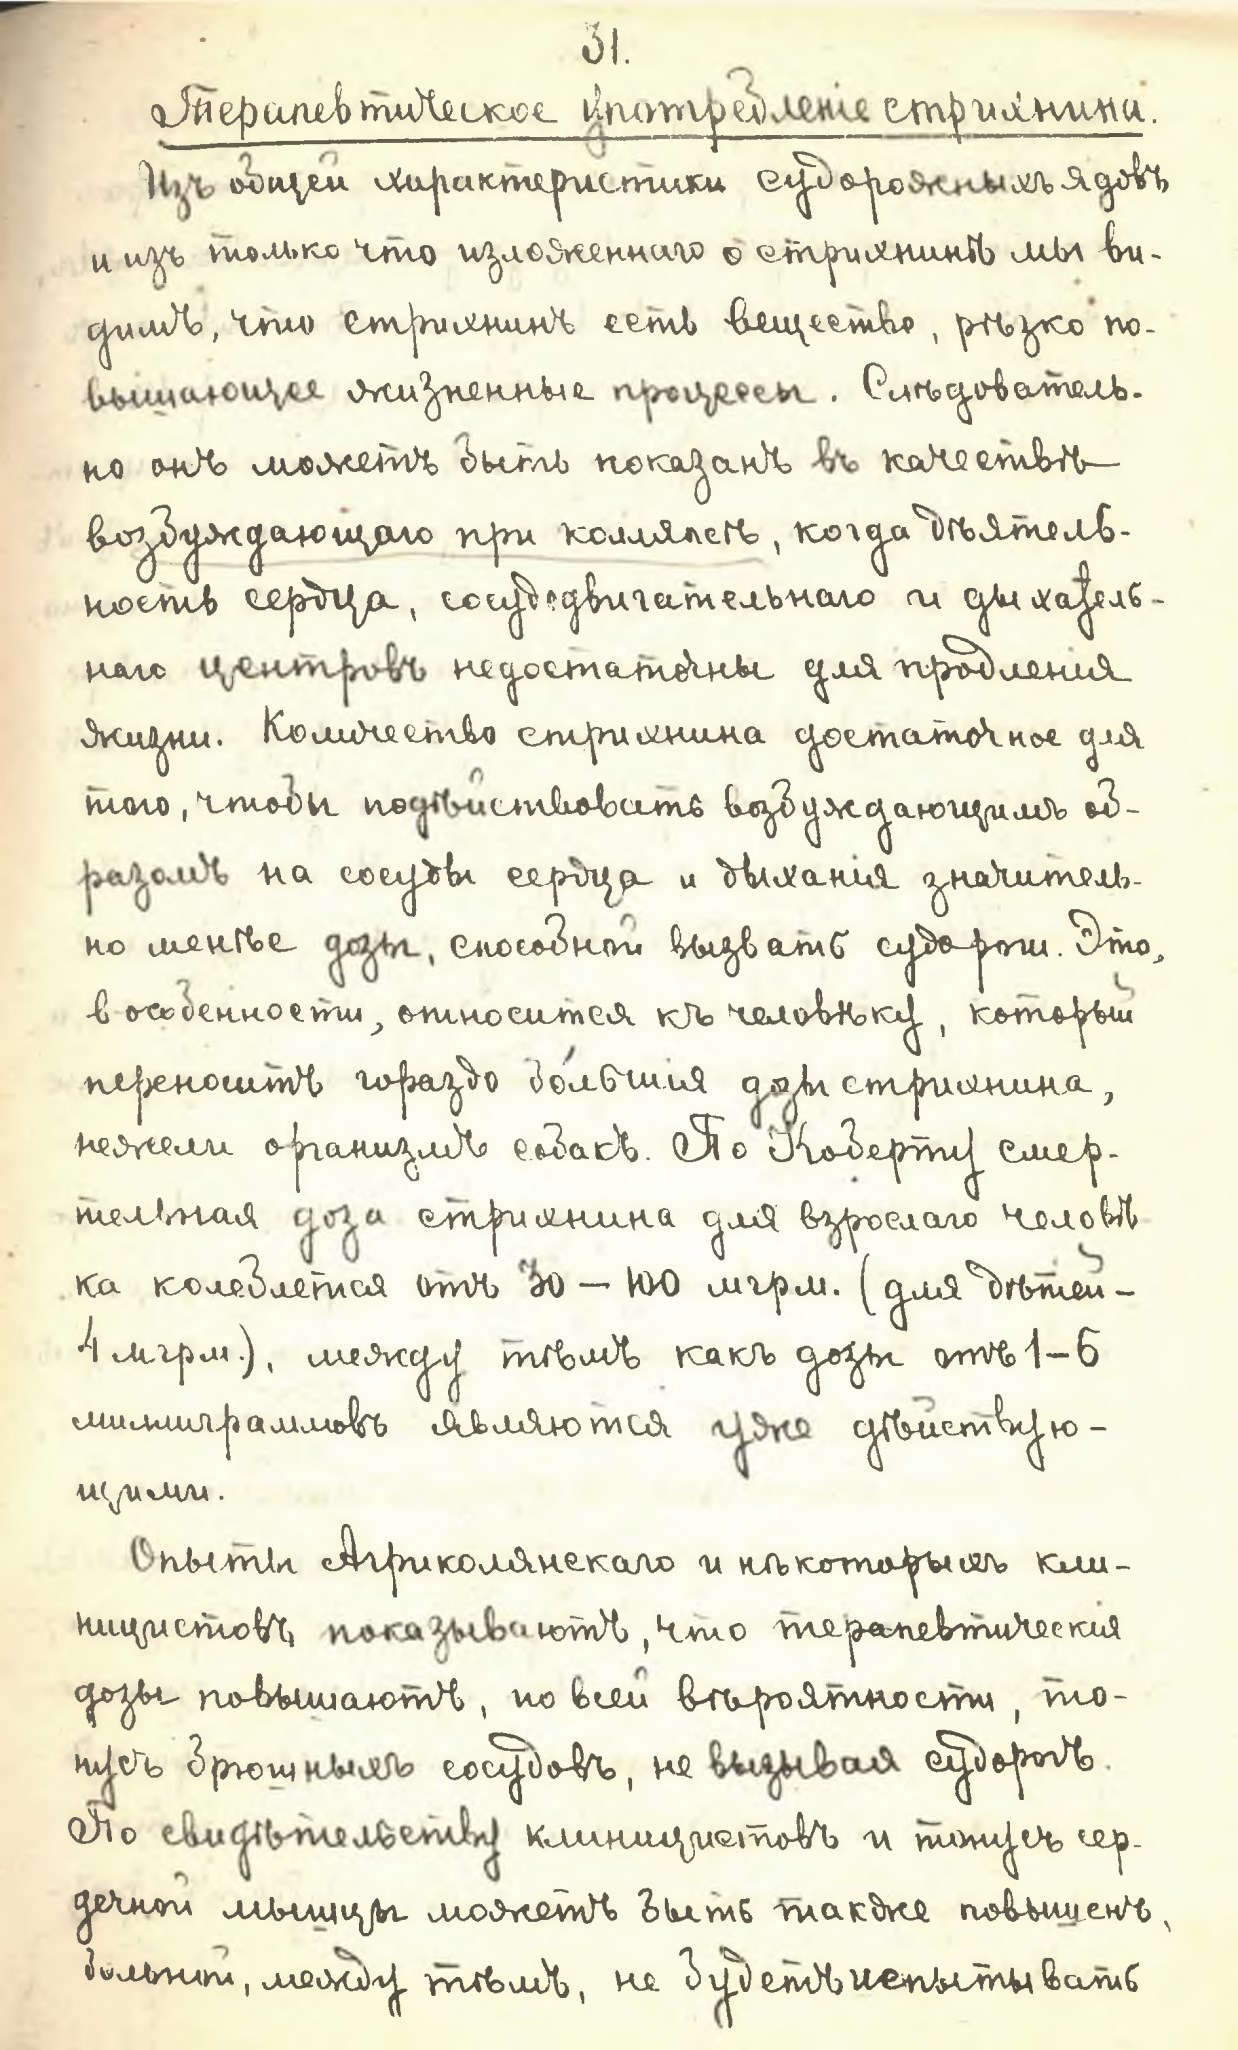 31.
Терапевтическое употребленіе стрихнина.
Изъ общей характеристики судорожныхъ ядовъ
и изъ только что изложеннаго о стрихнинѣ мы ви-
димъ, что стрихнинъ есть вещество, рѣзко по-
вышающее жизненные процессы. Слѣдователь-
но онъ можетъ быть показанъ въ качествѣ
возбуждающаго при коллапсѣ, когда дѣятель-
ность сердца, сосудодвигательнаго и дыхатель-
наго центровъ недостаточны для продленія
жизни. Количество стрихнина достаточное для
того, чтобы подѣйствовать возбуждающимъ об-
разомъ на сосуды сердца и дыханія значитель-
но менѣе дозы, способной вызвать судороги. Это,
в особенности, относится къ человѣку, который
переноситъ гораздо бо́льшія дозы стрихнина,
нежели организмъ собакъ. По Коберту смер-
тельная доза стрихнина для взрослаго человѣ
ка колеблется отъ 30 – 100 мгрм. (для дѣтей –
4 мгрм.), между тѣмъ какъ дозы отъ 1–6
миллиграммовъ являются уже дѣйствую-
щими.
Опыты Агриколянскаго и нѣкоторыхъ кли-
ницистовъ показываютъ, что терапевтическія
дозы повышаютъ, по всей вѣроятности, то-
нусъ брюшныхъ сосудовъ, не вызывая судорогъ.
По свидѣтельству клиницистовъ и тонусъ сер-
дечной мышцы можетъ быть также повышенъ,
больной, между тѣмъ, не будетъ испытывать